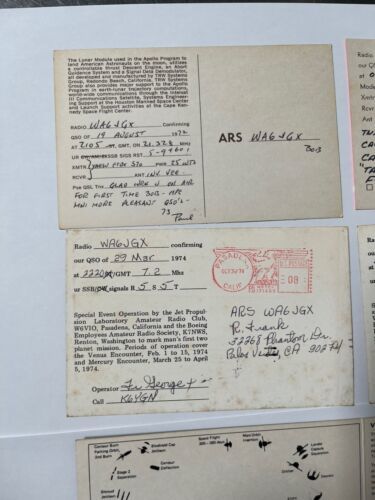 The Lunar Module used in the Apollo Program to
land American Astronauts on the moon, utilizes
a controllable thrust Descent Engine, an Abort
Guidance System and a Signal Data Demodulator,
all developed and manufactured by TRW Systems
Group, Redondo Beach, California. TRW Systems
Group also provides major support to the Apollo
Program in earth-lunar trajectory computations,
world-wide communications through the Intelsat
III Communications Satellite, Systems Engineer-
ing Support at the Houston Manned Space Center
and Launch Support activities at the Cape Ken-
nedy Space Flight Center.
RADIO WA6JGX Confirming
QSO OF 19 AUGUST 1972
AT 2105 GMT, ON 21.328 MHU
SSB SIGS RST 5-9
XMTR YAESU FTDX 570
RCVR ANT INV VEE
Pse QSL Tnx GLAD WORK U ON AIR
FOR FIRST TIME BOB - HPE
MNI MORE PLEASANT QSO'S -
73, Paul
ARS WA6JGX
BOB
Radio WA6JGX confirming
our QSO of 29 Mar 1974
at GMT 7.2 Mhz
ur SSB signals R 5 S 5 T
PASADENA
CALIF.
U.S. POSTAGE
08
Special Event Operation by the Jet Propul-
sion Laboratory Amateur Radio Club,
W6VIO, Pasadena, California and the Boeing
Employees Amateur Radio Society, K7NWS,
Renton, Washington to mark man's first two
planet mission. Periods of operation cover
the Venus Encounter, Feb. 1 to 15, 1974
and Mercury Encounter, March 25 to April
5, 1974.
Operator George
Call K6YGN
ARS WA6JGX
R. Frank
32268 Phantom Dr.
Palos Verdes, CA 90274
Centaur Burn
Parking Orbit,
2nd Burn
Shroud
Jettison
Stage 2
Separation
Centaur
Space Flight